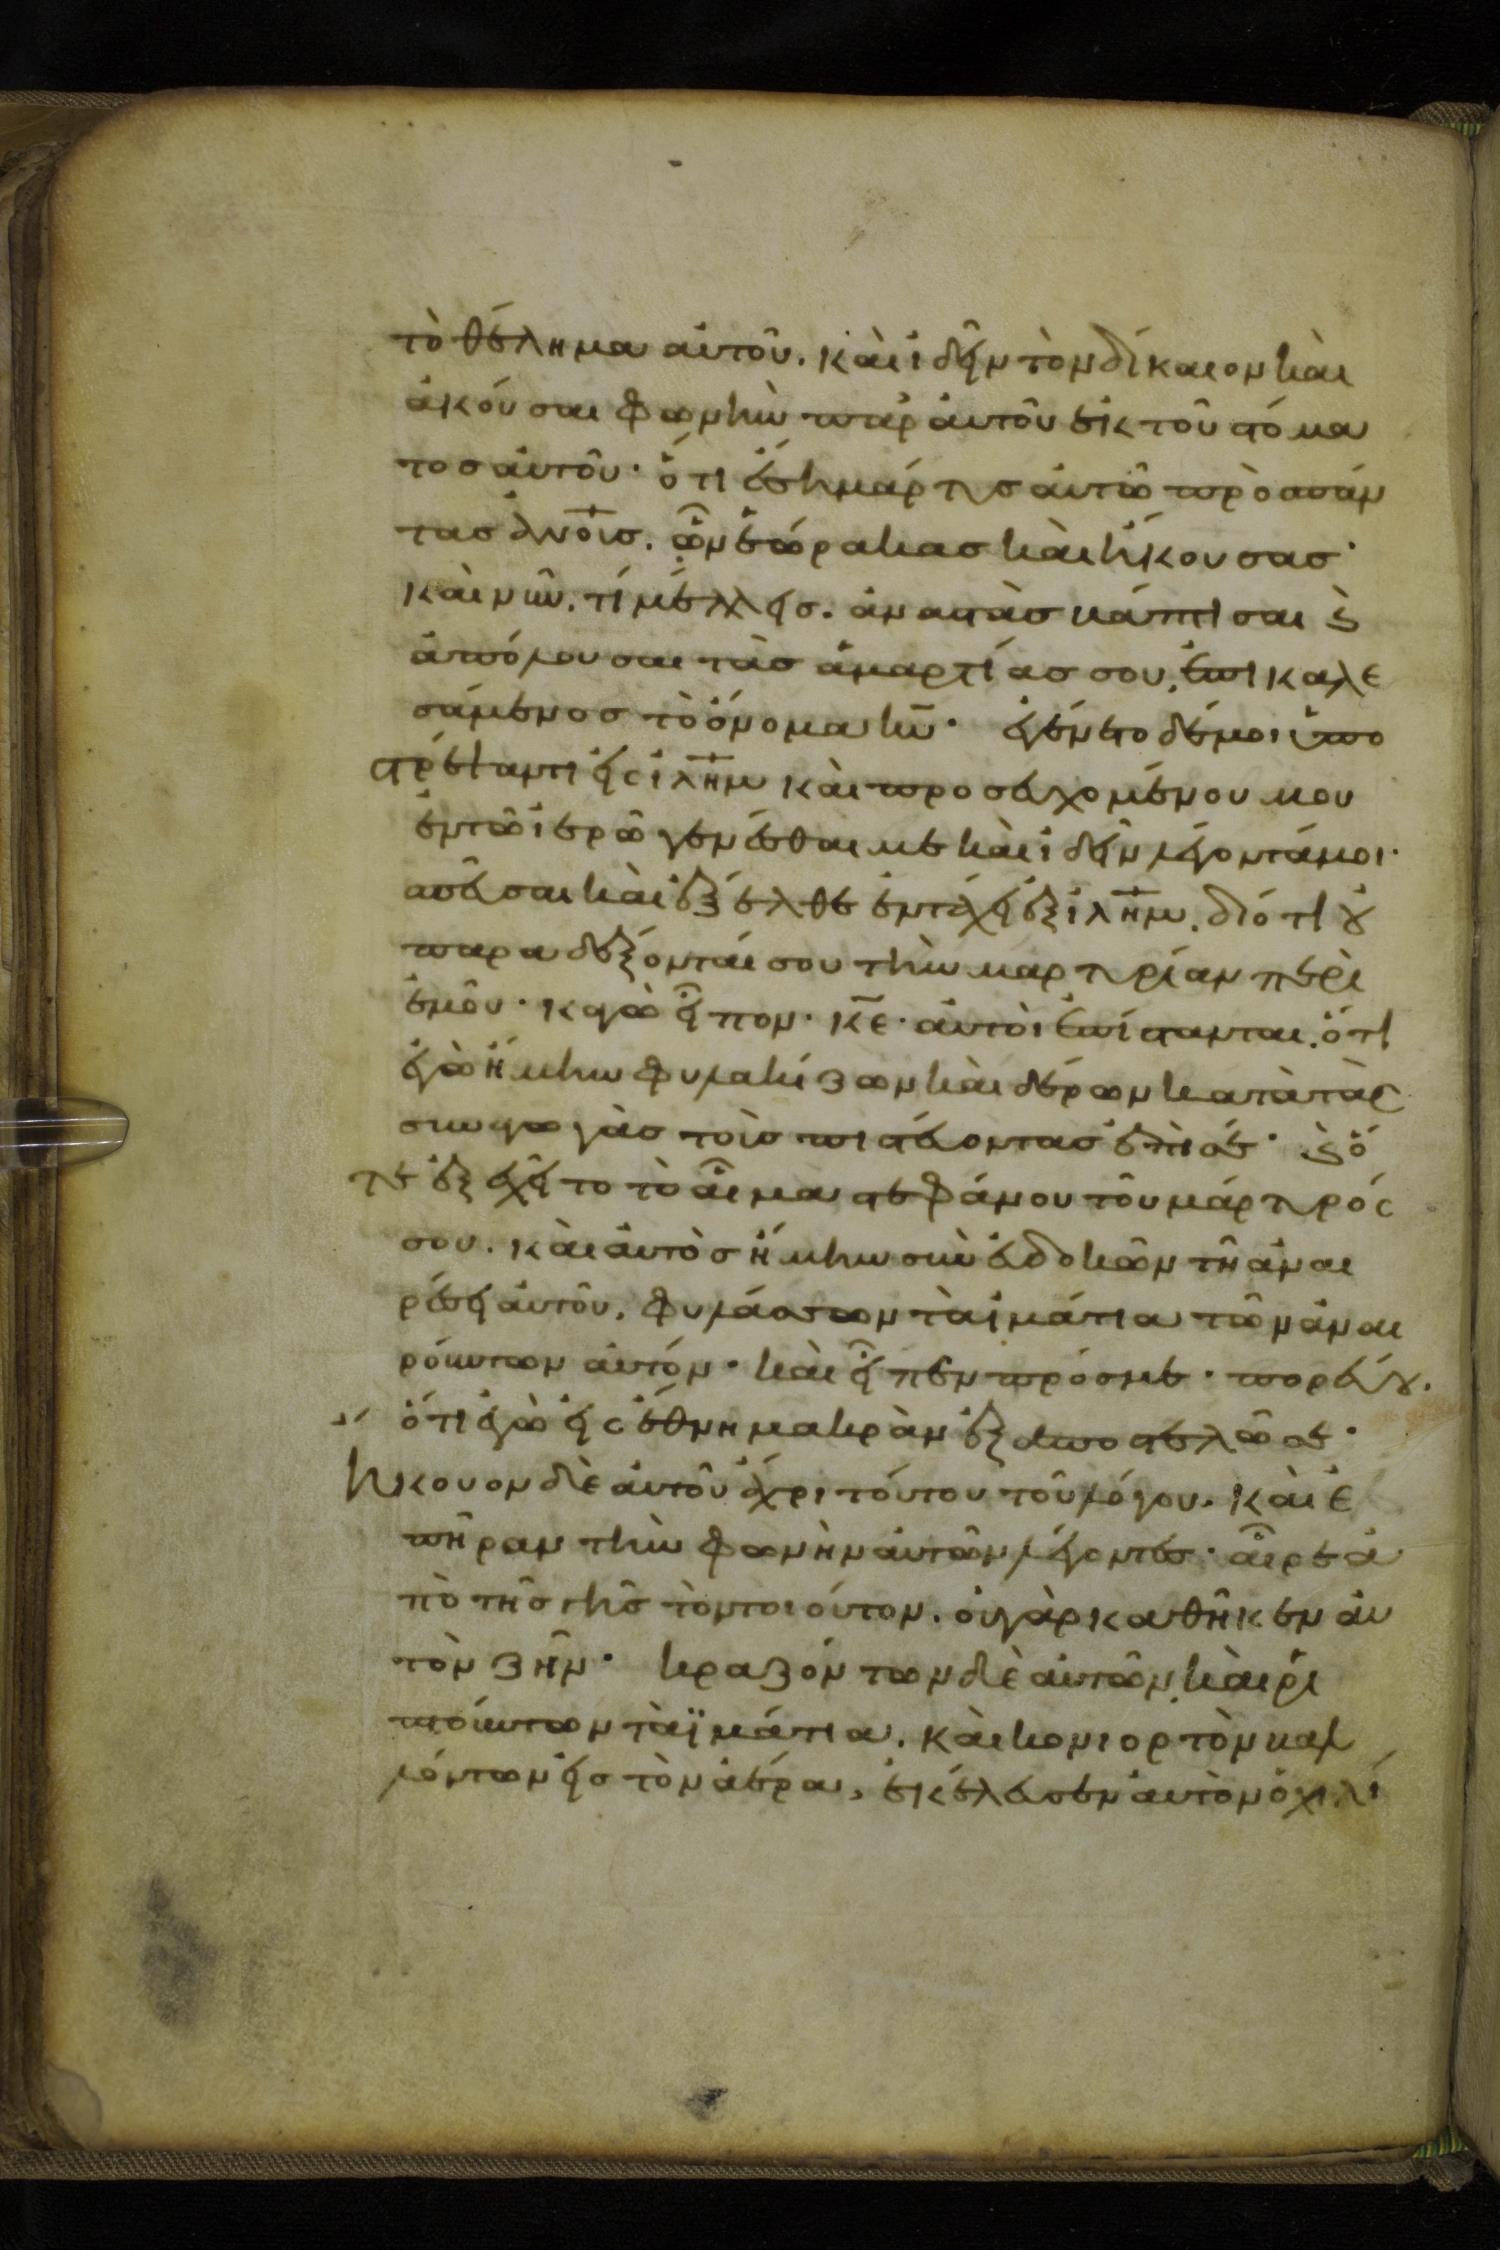 τὸ θέλημα αὐτοῦ. καὶ ἰδεῖν τὸν δίκαιον καὶ
ἀκούσαι φωνὴν παρ αὐτοῦ ἐκ τοῦ στόμα
τος αὐτοῦ· ὅτι ἔση μάρτυς αὐτῶ πρὸς πάν
τας ἀνο̅ις. ὧν ἑώρακας καὶ ἤκουσας·
καὶ νῦν. τί μέλλεις. ἀναστὰς βάπτισαι ϗ
ἀπόλουσαι τὰς ἁμαρτίας σου, ἐπικαλε
σάμενος τὸ ὄνομα κ̅υ̅· ἐγένετο δέ μοι ὑπο
στρέψαντι εἰς ἰλ̅η̅μ καὶ προσευχομένου μου
ἐν τῶ ἱερῶ γενέσθαι με καὶ ἰδεῖν λέγοντά μοι·
σπεῦσαι καὶ ἔξελθε ἐν τάχει ἐξ ἰλ̅η̅μ. διότι οὐ
παραδέξονταί σου τὴν μαρτυρίαν περὶ
ἐμοῦ· κἀγὼ εἶπον· κ̅ε̅· αὐτοὶ ἐπίστανται. ὅτι
ἐγὼ ἤμην φυλακίζων καὶ δέρων κατὰ τὰς
συναγωγὰς τοὺς πιστεύοντας ἐπὶ σέ· ϗ ὅ
τε ἐξεχεῖτο τὸ αἷμα στεφάνου τοῦ μάρτυρός
σου. καὶ αὐτὸς ἤμην συνευδοκῶν τῆ ἀναι
ρέσει αὐτοῦ. φυλάσσων τὰ ἱμάτια τῶν ἀναι
ρούντων αὐτόν· καὶ εἶπεν πρός με· πορεύου.
ὅτι ἐγὼ εἰς ἔθνη μακρὰν ἐξαποστελῶ σε·
ἤκουον δὲ αὐτοῦ ἄχρι τούτου τοῦ λόγου. καὶ ἐ
πῆραν τὴν φωνὴν αὐτῶν λέγοντες· αἶρε ἀ
πὸ τῆς γῆς τὸν τοιοῦτον. οὐ γὰρ καθῆκεν αὐ
τὸν ζῆν· κραζόντων δὲ αὐτῶν, καὶ ῥι
πτούντων τὰ ϊμάτια. καὶ κονιορτὸν βαλ
λόντων εἰς τὸν ἀέρα, ἐκέλευσεν αὐτὸν ὁ χιλί